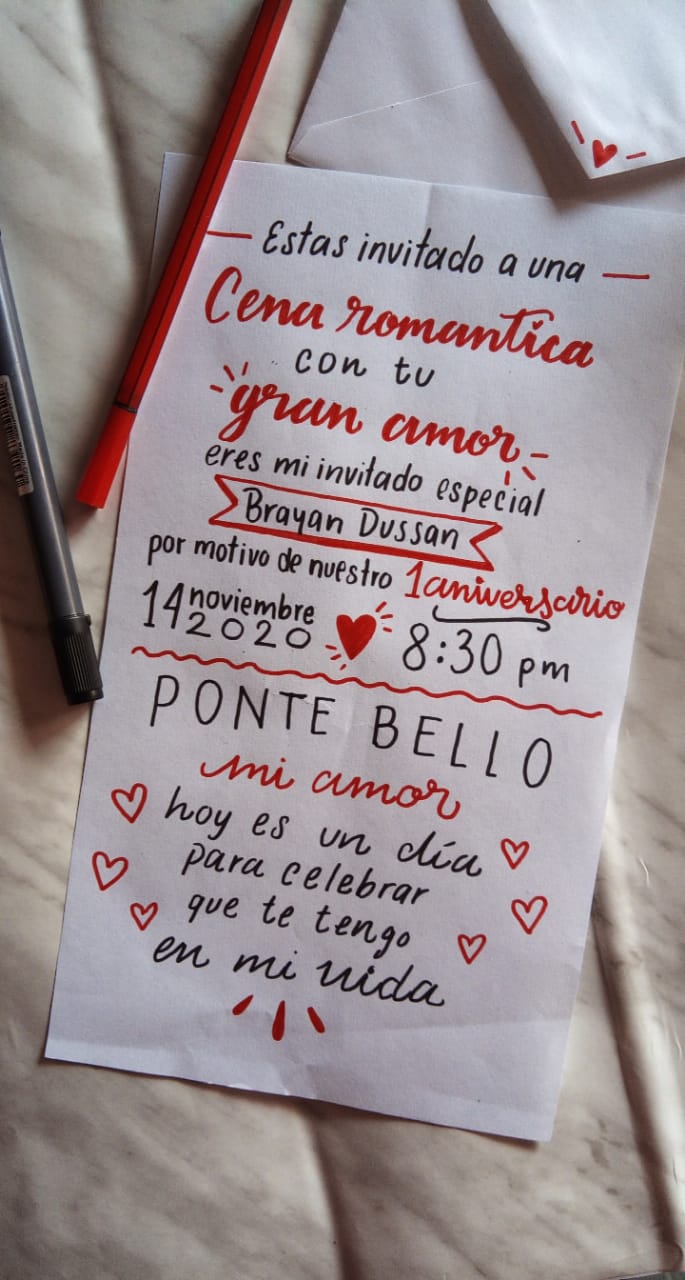 Estas invitado a una
Cena romantica
con tu
gran amor
eres mi invitado especial
Brayan Dussan
por motivo de nuestro 1 aniversario
14 noviembre 2020 8:30 pm
PONTE BELLO
mi amor
hoy es un día
para celebrar
que te tengo
en mi vida